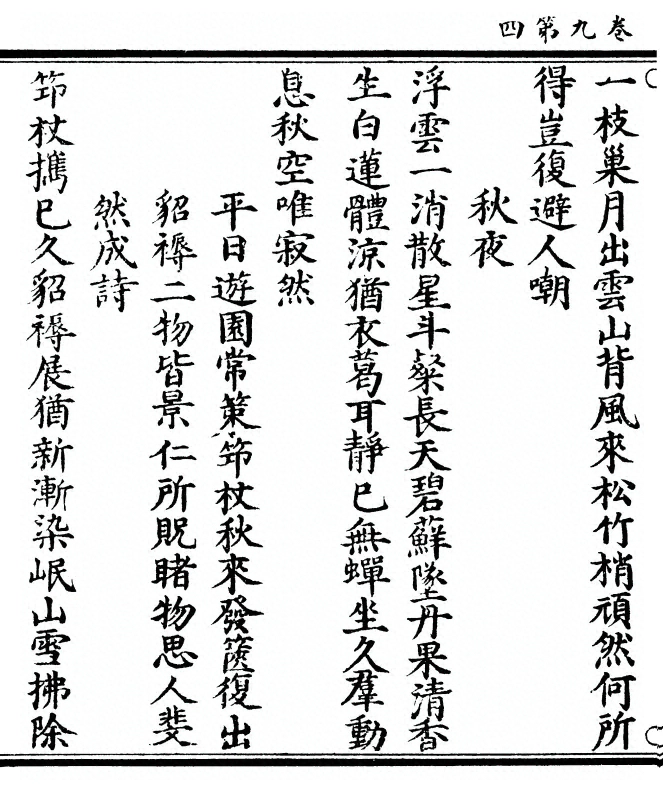 四第九卷
一枝巢月出雲山背風來松竹梢頑然何所
得豈復避人嘲
秋夜
浮雲一消散星斗粲長天碧蘚墜丹果清香
生白蓮體涼猶衣葛耳靜巳無蟬坐久羣動
息秋空唯寂然
平日遊園常策筇杖秋來發篋復出
貂褥二物皆景仁所貺睹物思人斐
然成詩
筇杖攜巳久貂褥展猶新漸染岷山雪拂除